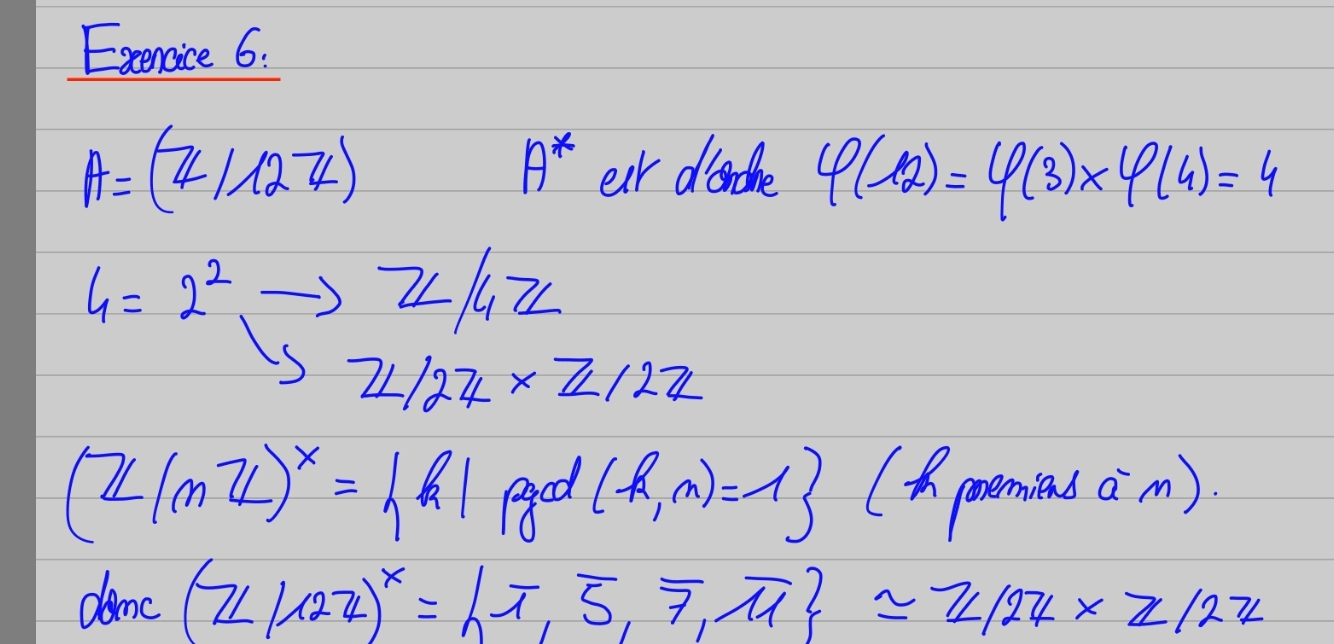 Exercice 6:
A = (ℤ/12ℤ) A* est d'ordre φ(12) = φ(3) × φ(4) = 4
4 = 2² → ℤ/4ℤ
↘ ℤ/2ℤ × ℤ/2ℤ
(ℤ/nℤ)^× = {k | pgcd (k, n) = 1} (k premiers à n).
donc (ℤ/12ℤ)^× = {1̅, 5̅, 7̅, 1̅1̅} ≃ ℤ/2ℤ × ℤ/2ℤ